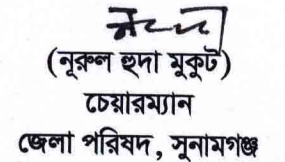 (নূরুল হুদা মুকুট)
চেয়ারম্যান
জেলা পরিষদ, সুনামগঞ্জ